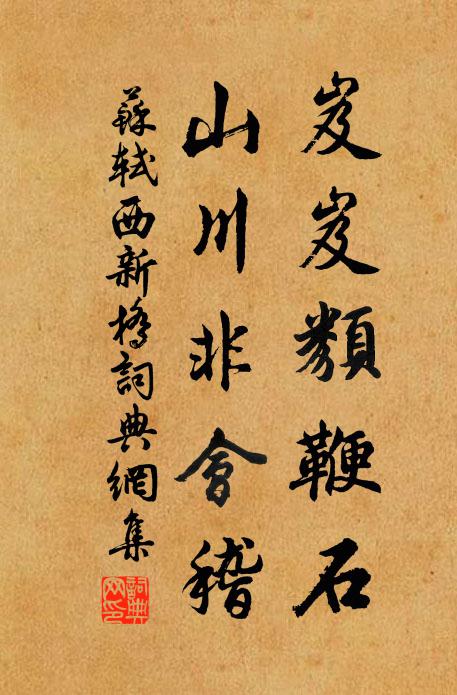 岌岌類鞭石
山川非會稽
蘇軾西新橋詞典網集
詞典網印